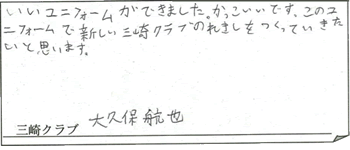 いいユニフォームができました。かっこいいです。このユ
ニフォームで新しい三崎クラブのれきしをつくっていきた
いと思います。
三崎クラブ 大久保航也